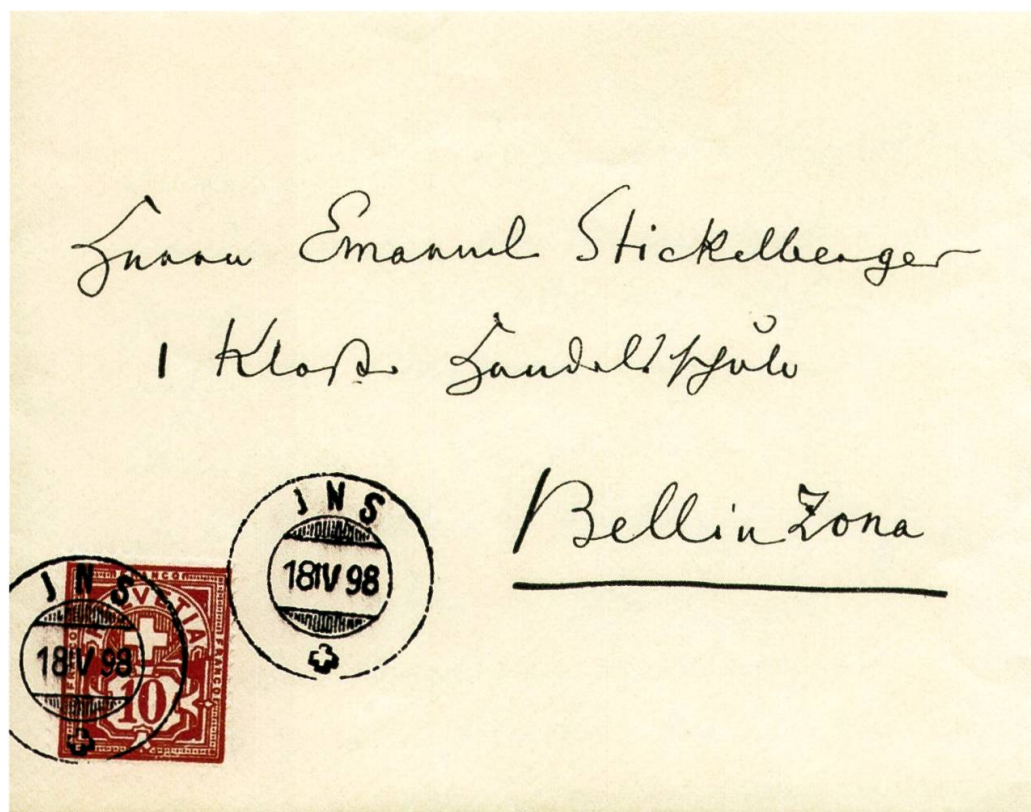 Herrn Emanuel Stickelberger
1 Klasse Handelsschule
Bellinzona
JNS
18 IV 98
JNS
18 IV 98
FRANCO
HELVETIA
FRANCO
FRANCO
10